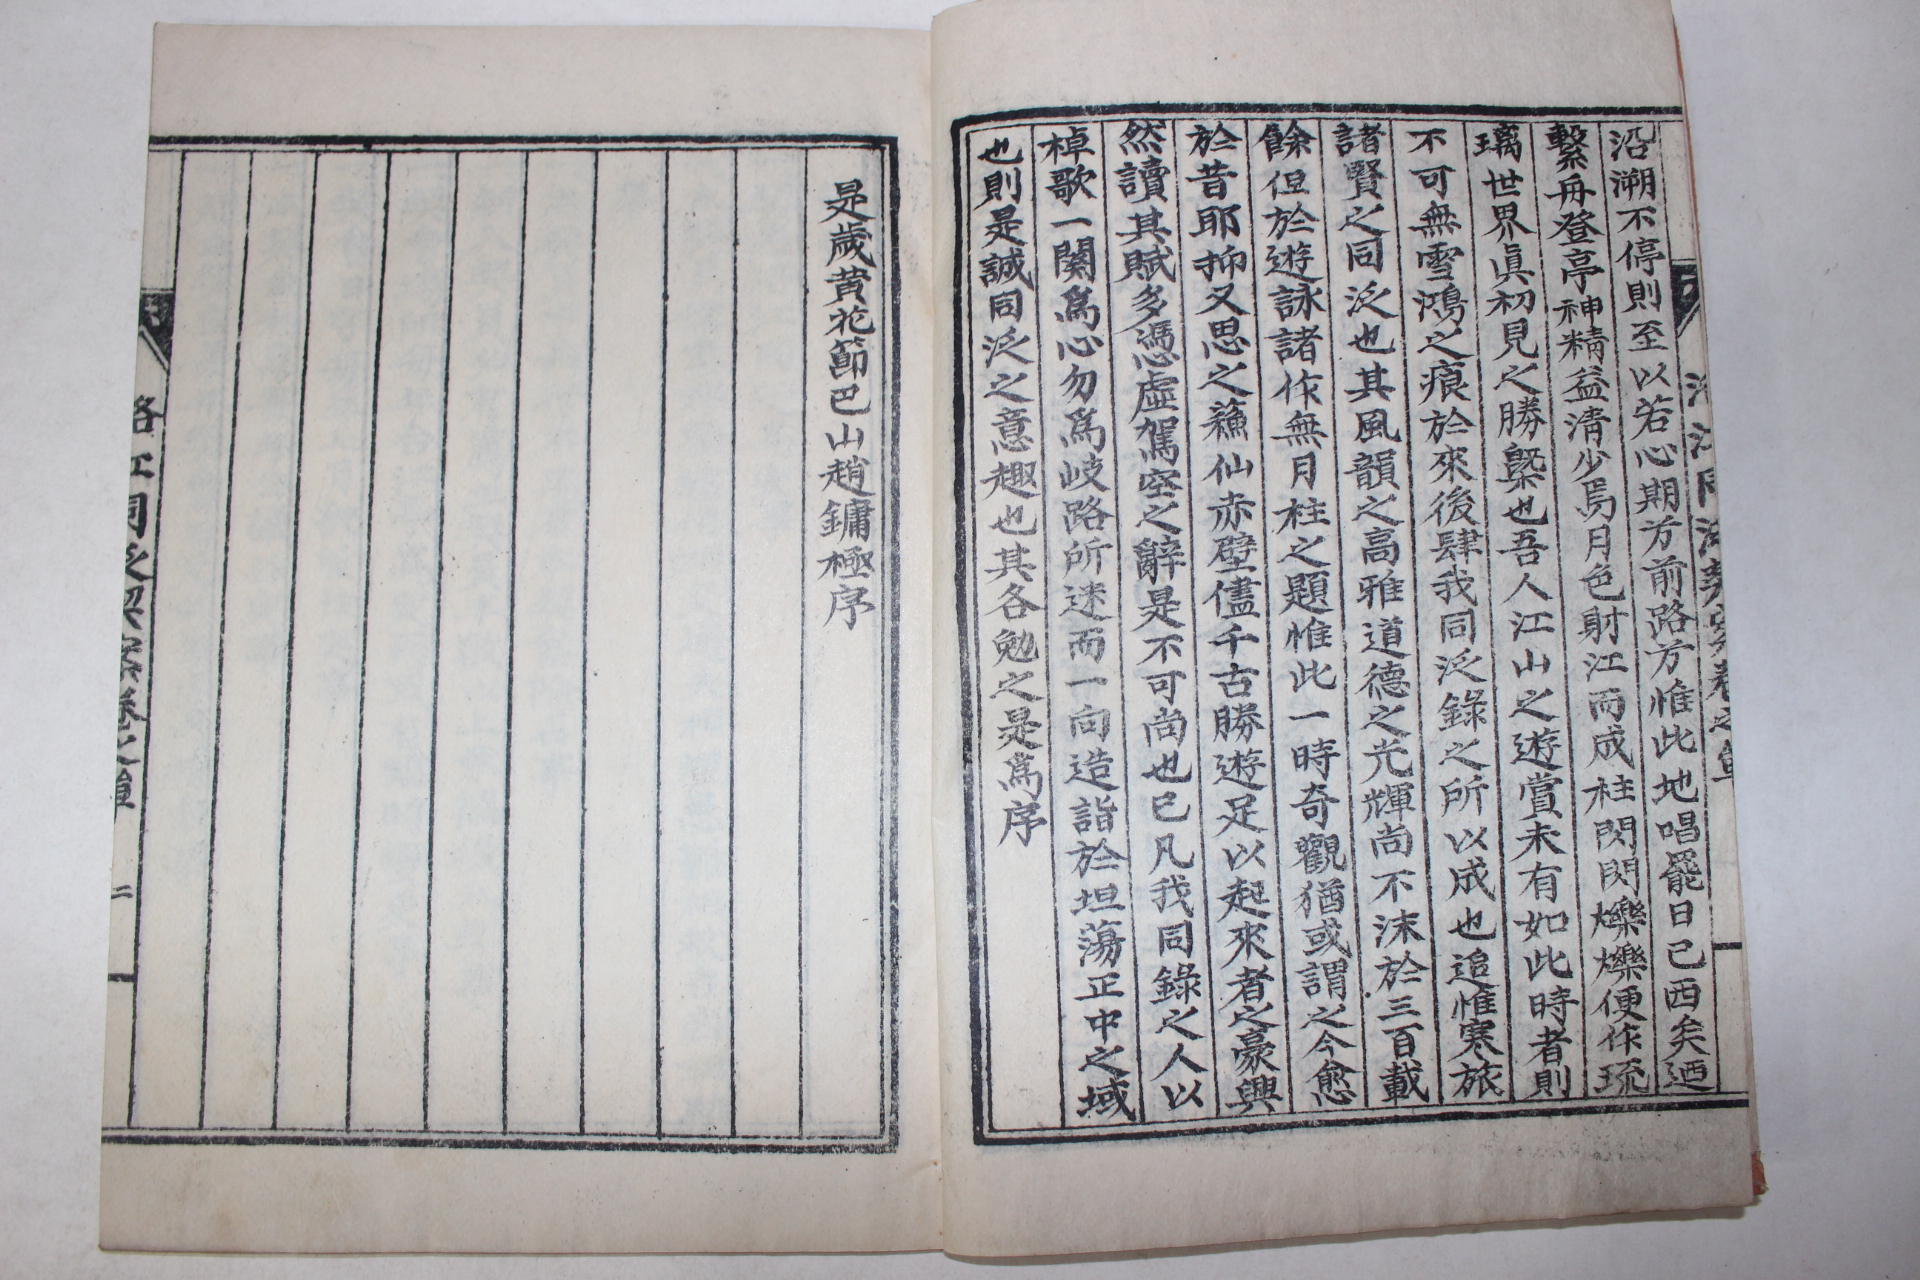 沿溯不停則至以若心期方前路方惟此地唱罷日已西矣迺
繫舟登亭神精益清少焉月色射江而成柱閃閃爍爍便作琉
璃世界眞初見之勝槩也吾人江山之遊賞未有如此時者則
不可無雪鴻之痕於來後肆我同泛錄之所以成也追惟寒旅
諸賢之同泛也其風韻之高雅道德之光輝尚不沫於三百載
餘但於遊詠諸作無月柱之題惟此一時奇觀猶或謂之今愈
於昔耶抑又思之蘓仙赤壁儘千古勝遊足以起來者之豪興
然讀其賦多憑虛駕空之辭是不可尚也已凡我同錄之人以
棹歌一闋爲心勿爲岐路所迷而一向造詣於坦蕩正中之域
也則是誠同泛之意趣也其各勉之是爲序
是歲黃花節巴山趙鏞極序
洛江同泛契案卷之單
二